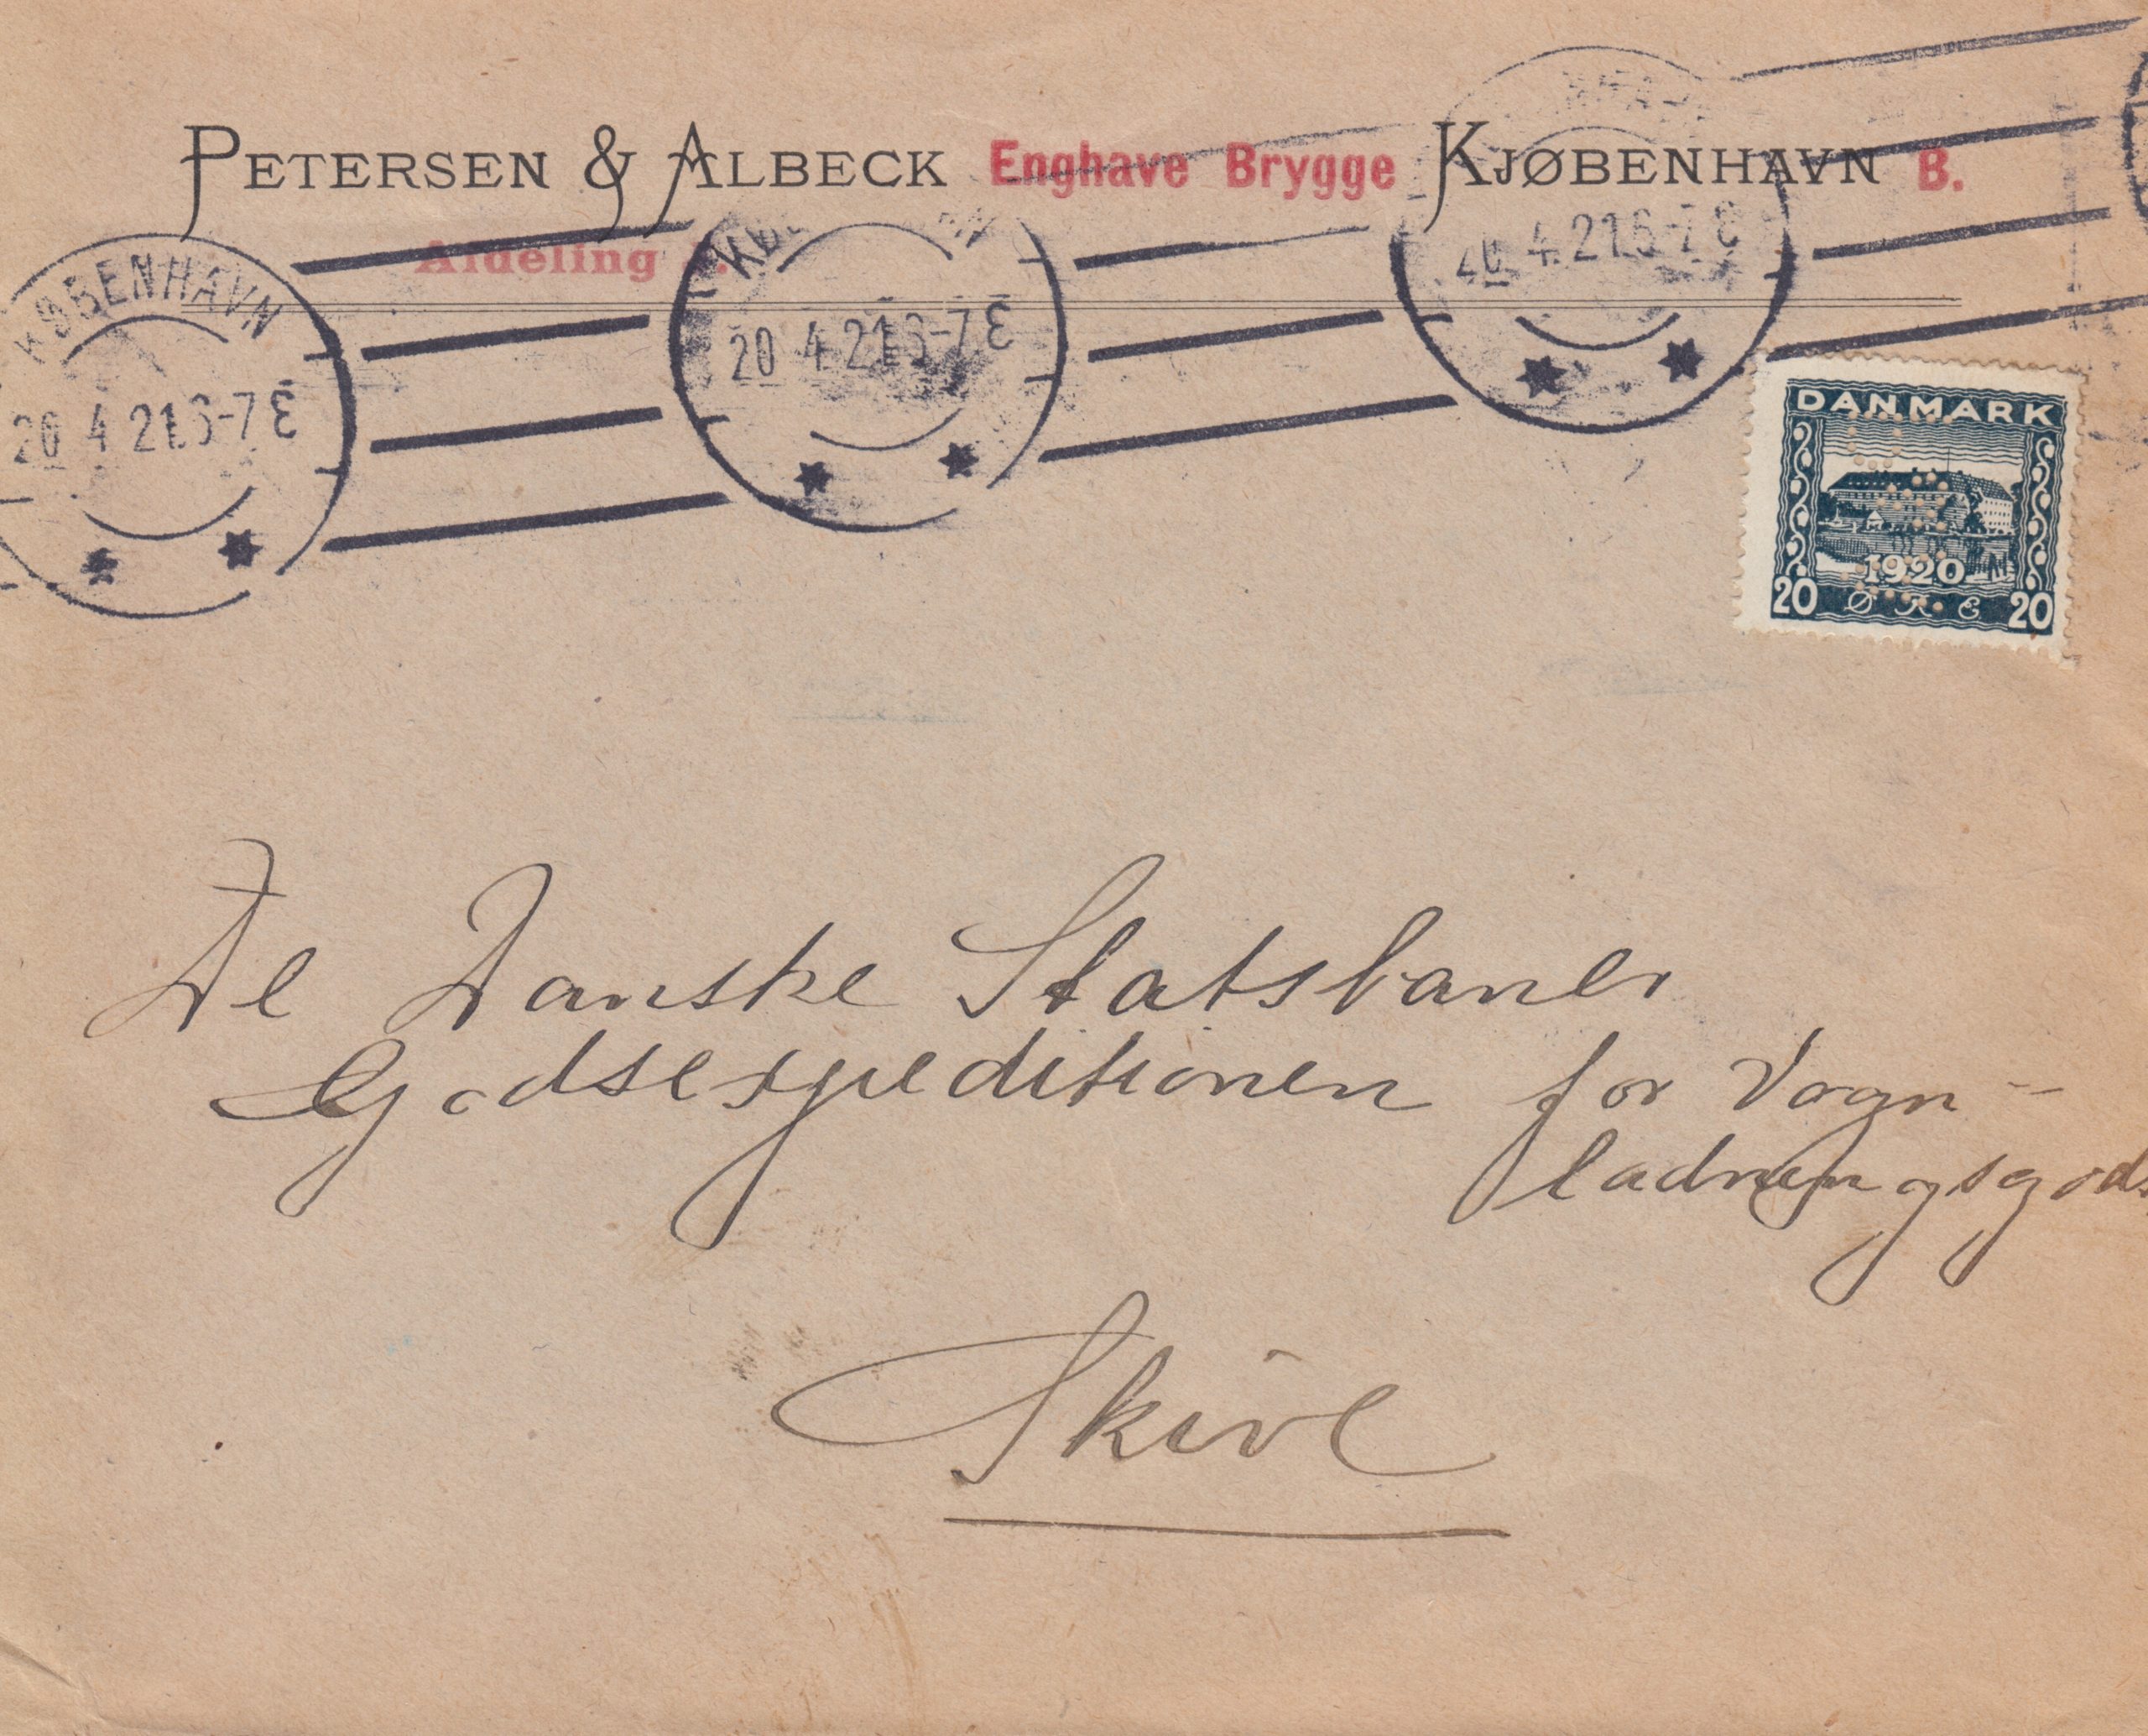 PETERSEN & ALBECK Enghave Brygge KJØBENHAVN B.
Afdeling
KØBENHAVN
20 4 21.6-7 E
20 4 21.6-7 E
20 4. 21.6-7 E
DANMARK
1920
20 ØRE 20
De Danske Statsbaner
Godsexpeditionen for Vogn-
ladningsgods
Skive